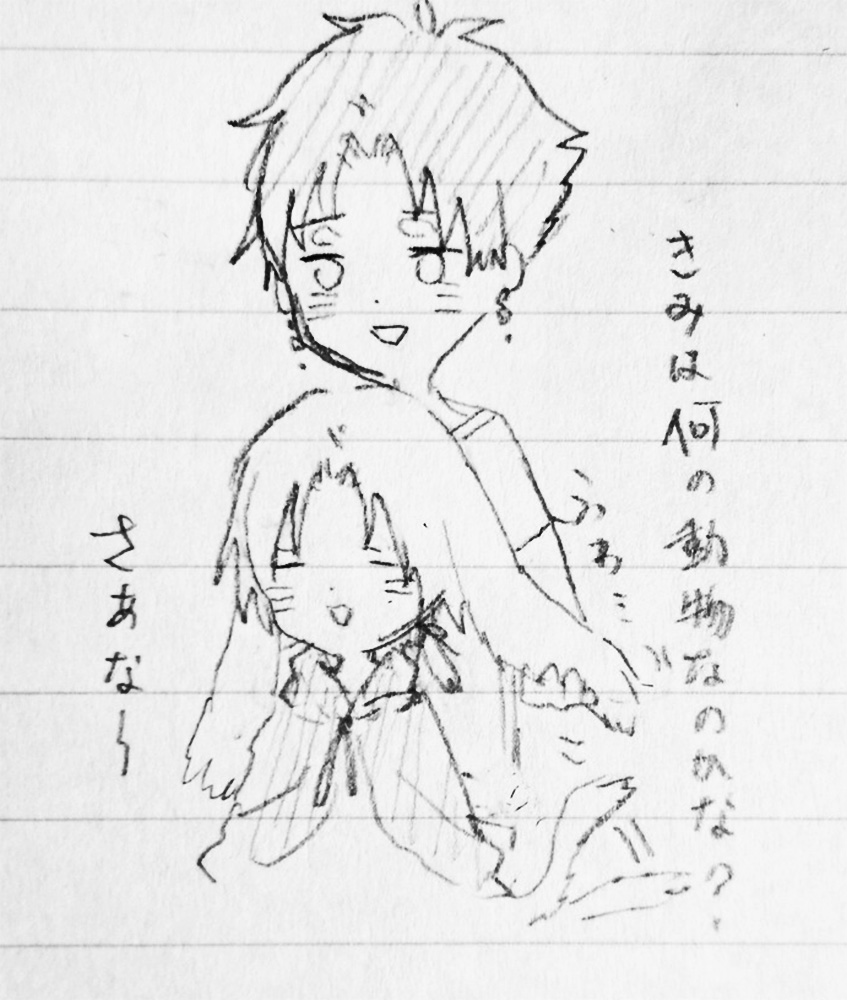 きみは何の動物なのかな?
ふわ…
さあな〜